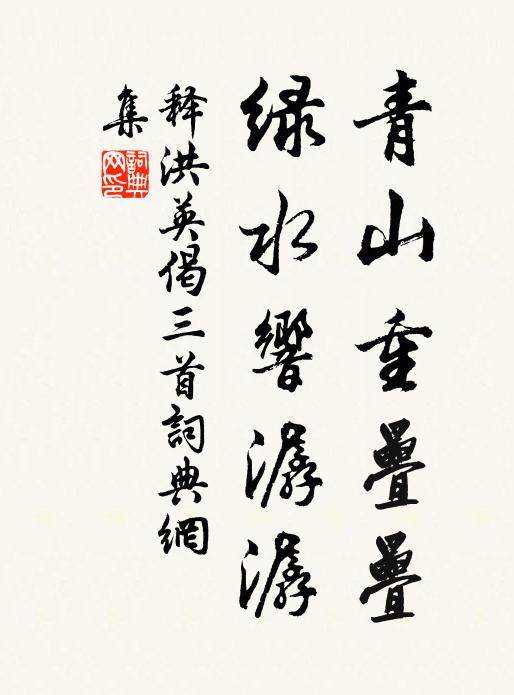 青山重疊疊
绿水響潺潺
释洪英偈三首詞典網
集
詞典
网印